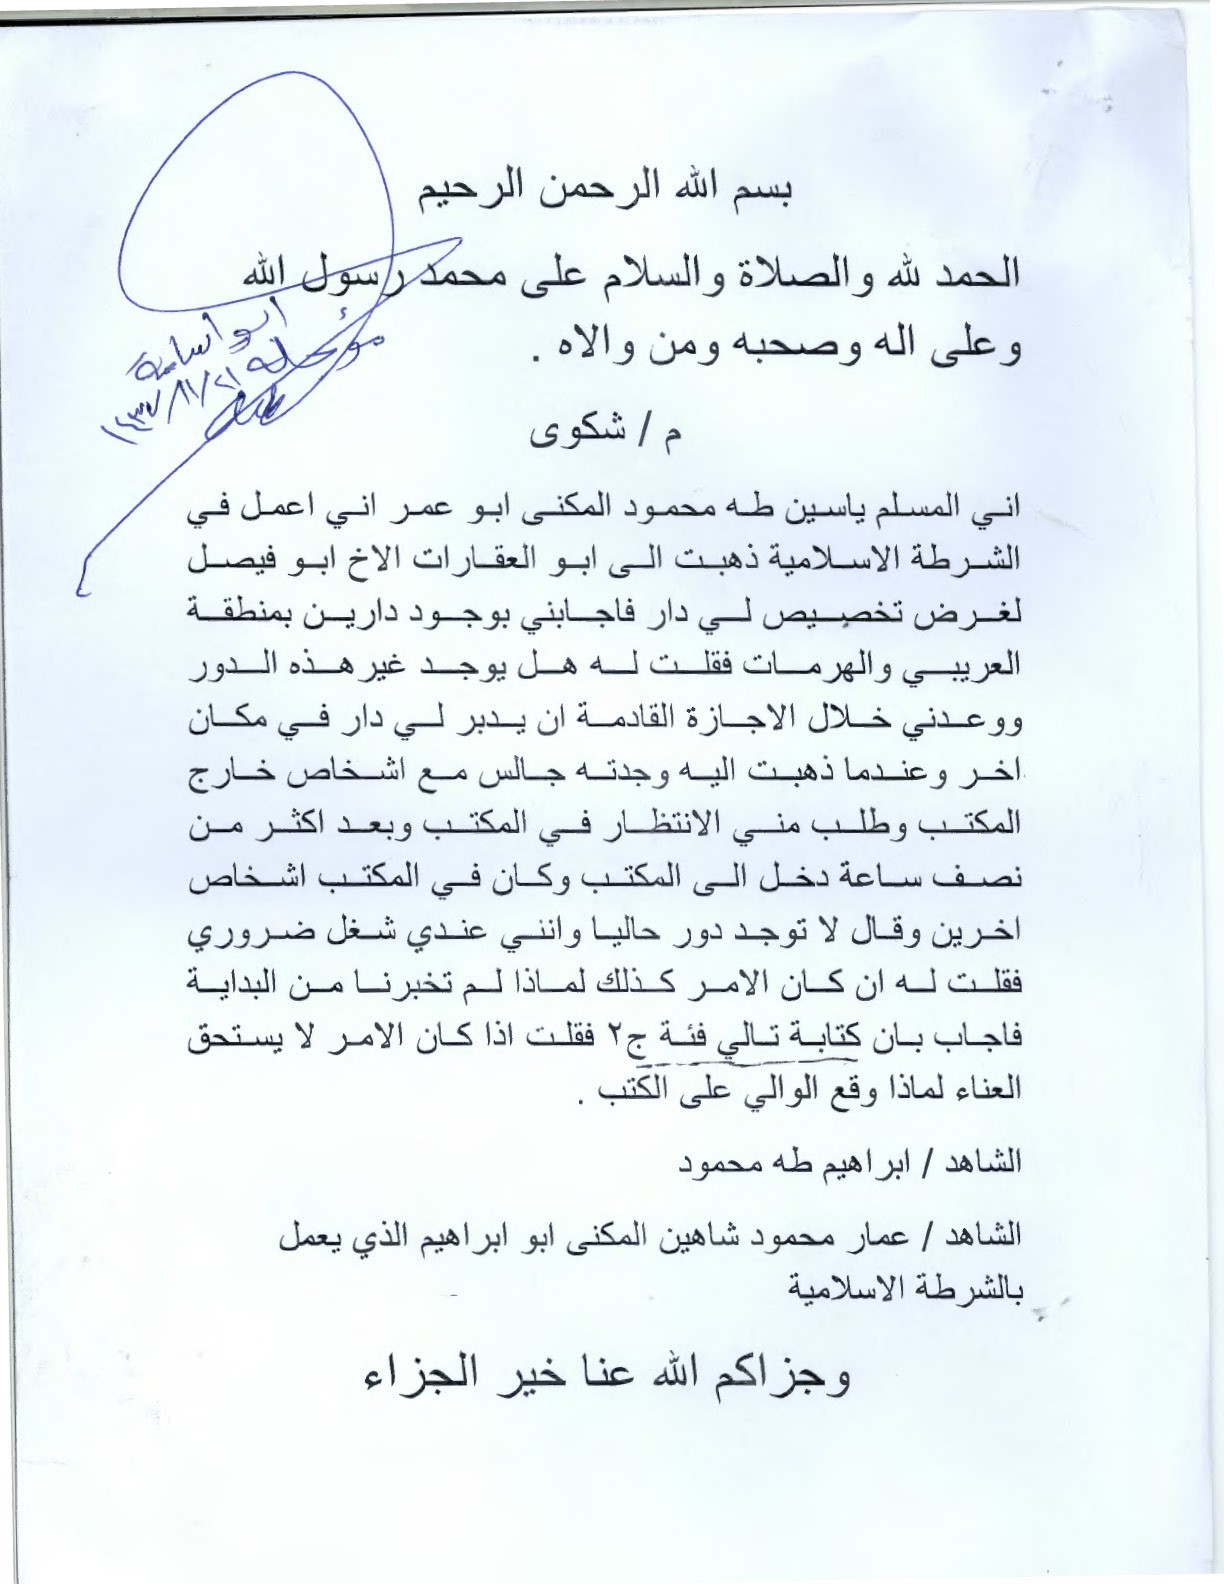 بسم الله الرحمن الرحيم
الحمد لله والصلاة والسلام على محمد رسول الله
وعلى اله وصحبه ومن والاه .
ابو أسامة
١٤٣٧/١١/٢١
م / شكوى
اني المسلم ياسين طه محمود المكنى ابو عمر اني اعمل في
الشرطة الاسلامية ذهبت الى ابو العقارات الاخ ابو فيصل
لغرض تخصيص لي دار فاجابني بوجود دارين بمنطقة
العريبي والهرمات فقلت له هل يوجد غير هذه الدور
ووعدني خلال الاجازة القادمة ان يدبر لي دار في مكان
اخر وعندما ذهبت اليه وجدته جالس مع اشخاص خارج
المكتب وطلب مني الانتظار في المكتب وبعد اكثر من
نصف ساعة دخل الى المكتب وكان في المكتب اشخاص
اخرين وقال لا توجد دور حاليا وانني عندي شغل ضروري
فقلت له ان كان الامر كذلك لماذا لم تخبرنا من البداية
فاجاب بان كتابة تالي فئة ج٢ فقلت اذا كان الامر لا يستحق
العناء لماذا وقع الوالي على الكتب .
الشاهد / ابراهيم طه محمود
الشاهد / عمار محمود شاهين المكنى ابو ابراهيم الذي يعمل
بالشرطة الاسلامية
وجزاكم الله عنا خير الجزاء